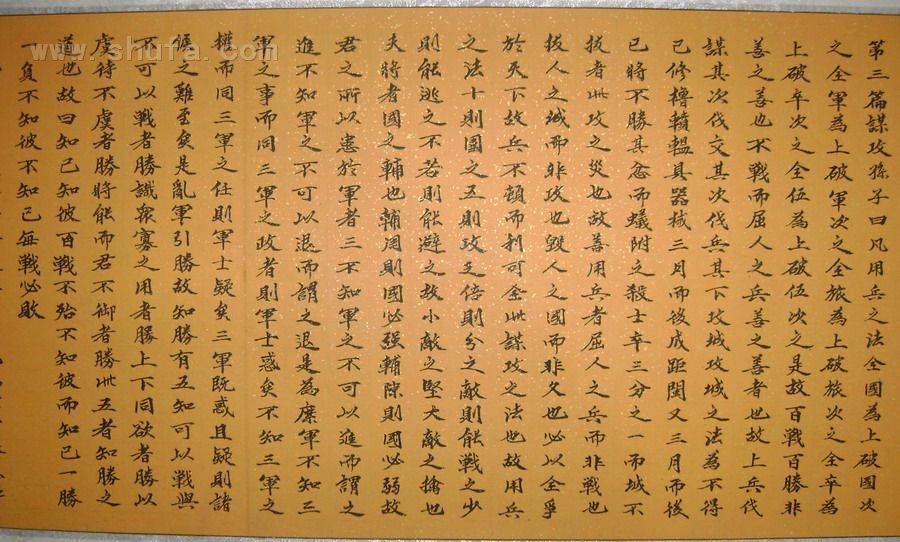 第三篇謀攻孫子曰凡用兵之法全國為上破國次
之全軍為上破軍次之全旅為上破旅次之全卒為
上破卒次之全伍為上破伍次之是故百戰百勝非
善之善也不戰而屈人之兵善之善者也故上兵伐
謀其次伐交其次伐兵其下攻城攻城之法為不得
已修櫓轒轀具器械三月而後成距闉又三月而後
已將不勝其忿而蟻附之殺士卒三分之一而城不
拔者此攻之災也故善用兵者屈人之兵而非戰也
拔人之城而非攻也毀人之國而非久也必以全爭
於天下故兵不頓而利可全此謀攻之法也故用兵
之法十則圍之五則攻之倍則分之敵則能戰之少
則能逃之不若則能避之故小敵之堅大敵之擒也
夫將者國之輔也輔周則國必強輔隙則國必弱故
君之所以患於軍者三不知軍之不可以進而謂之
進不知軍之不可以退而謂之退是為縻軍不知三
軍之事而同三軍之政者則軍士惑矣不知三軍之
權而同三軍之任則軍士疑矣三軍既惑且疑則諸
侯之難至矣是亂軍引勝故知勝有五知可以戰與
不可以戰者勝識衆寡之用者勝上下同欲者勝以
虞待不虞者勝將能而君不御者勝此五者知勝之
道也故曰知己知彼百戰不殆不知彼而知己一勝
一負不知彼不知己每戰必敗
www.shufa.com